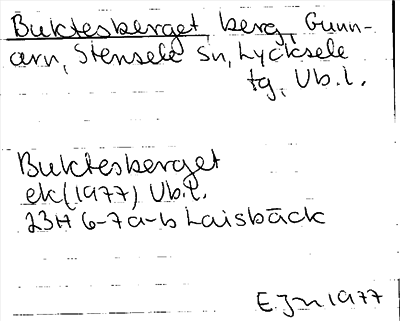 Buktesberget, berg, Gunn-
arn, Stensele sn, Lycksele
tg, Vb.l.
Buktesberget
ek(1977) Vb.l.
23H 6-7a-b Laisbäck
E.Jn 1977